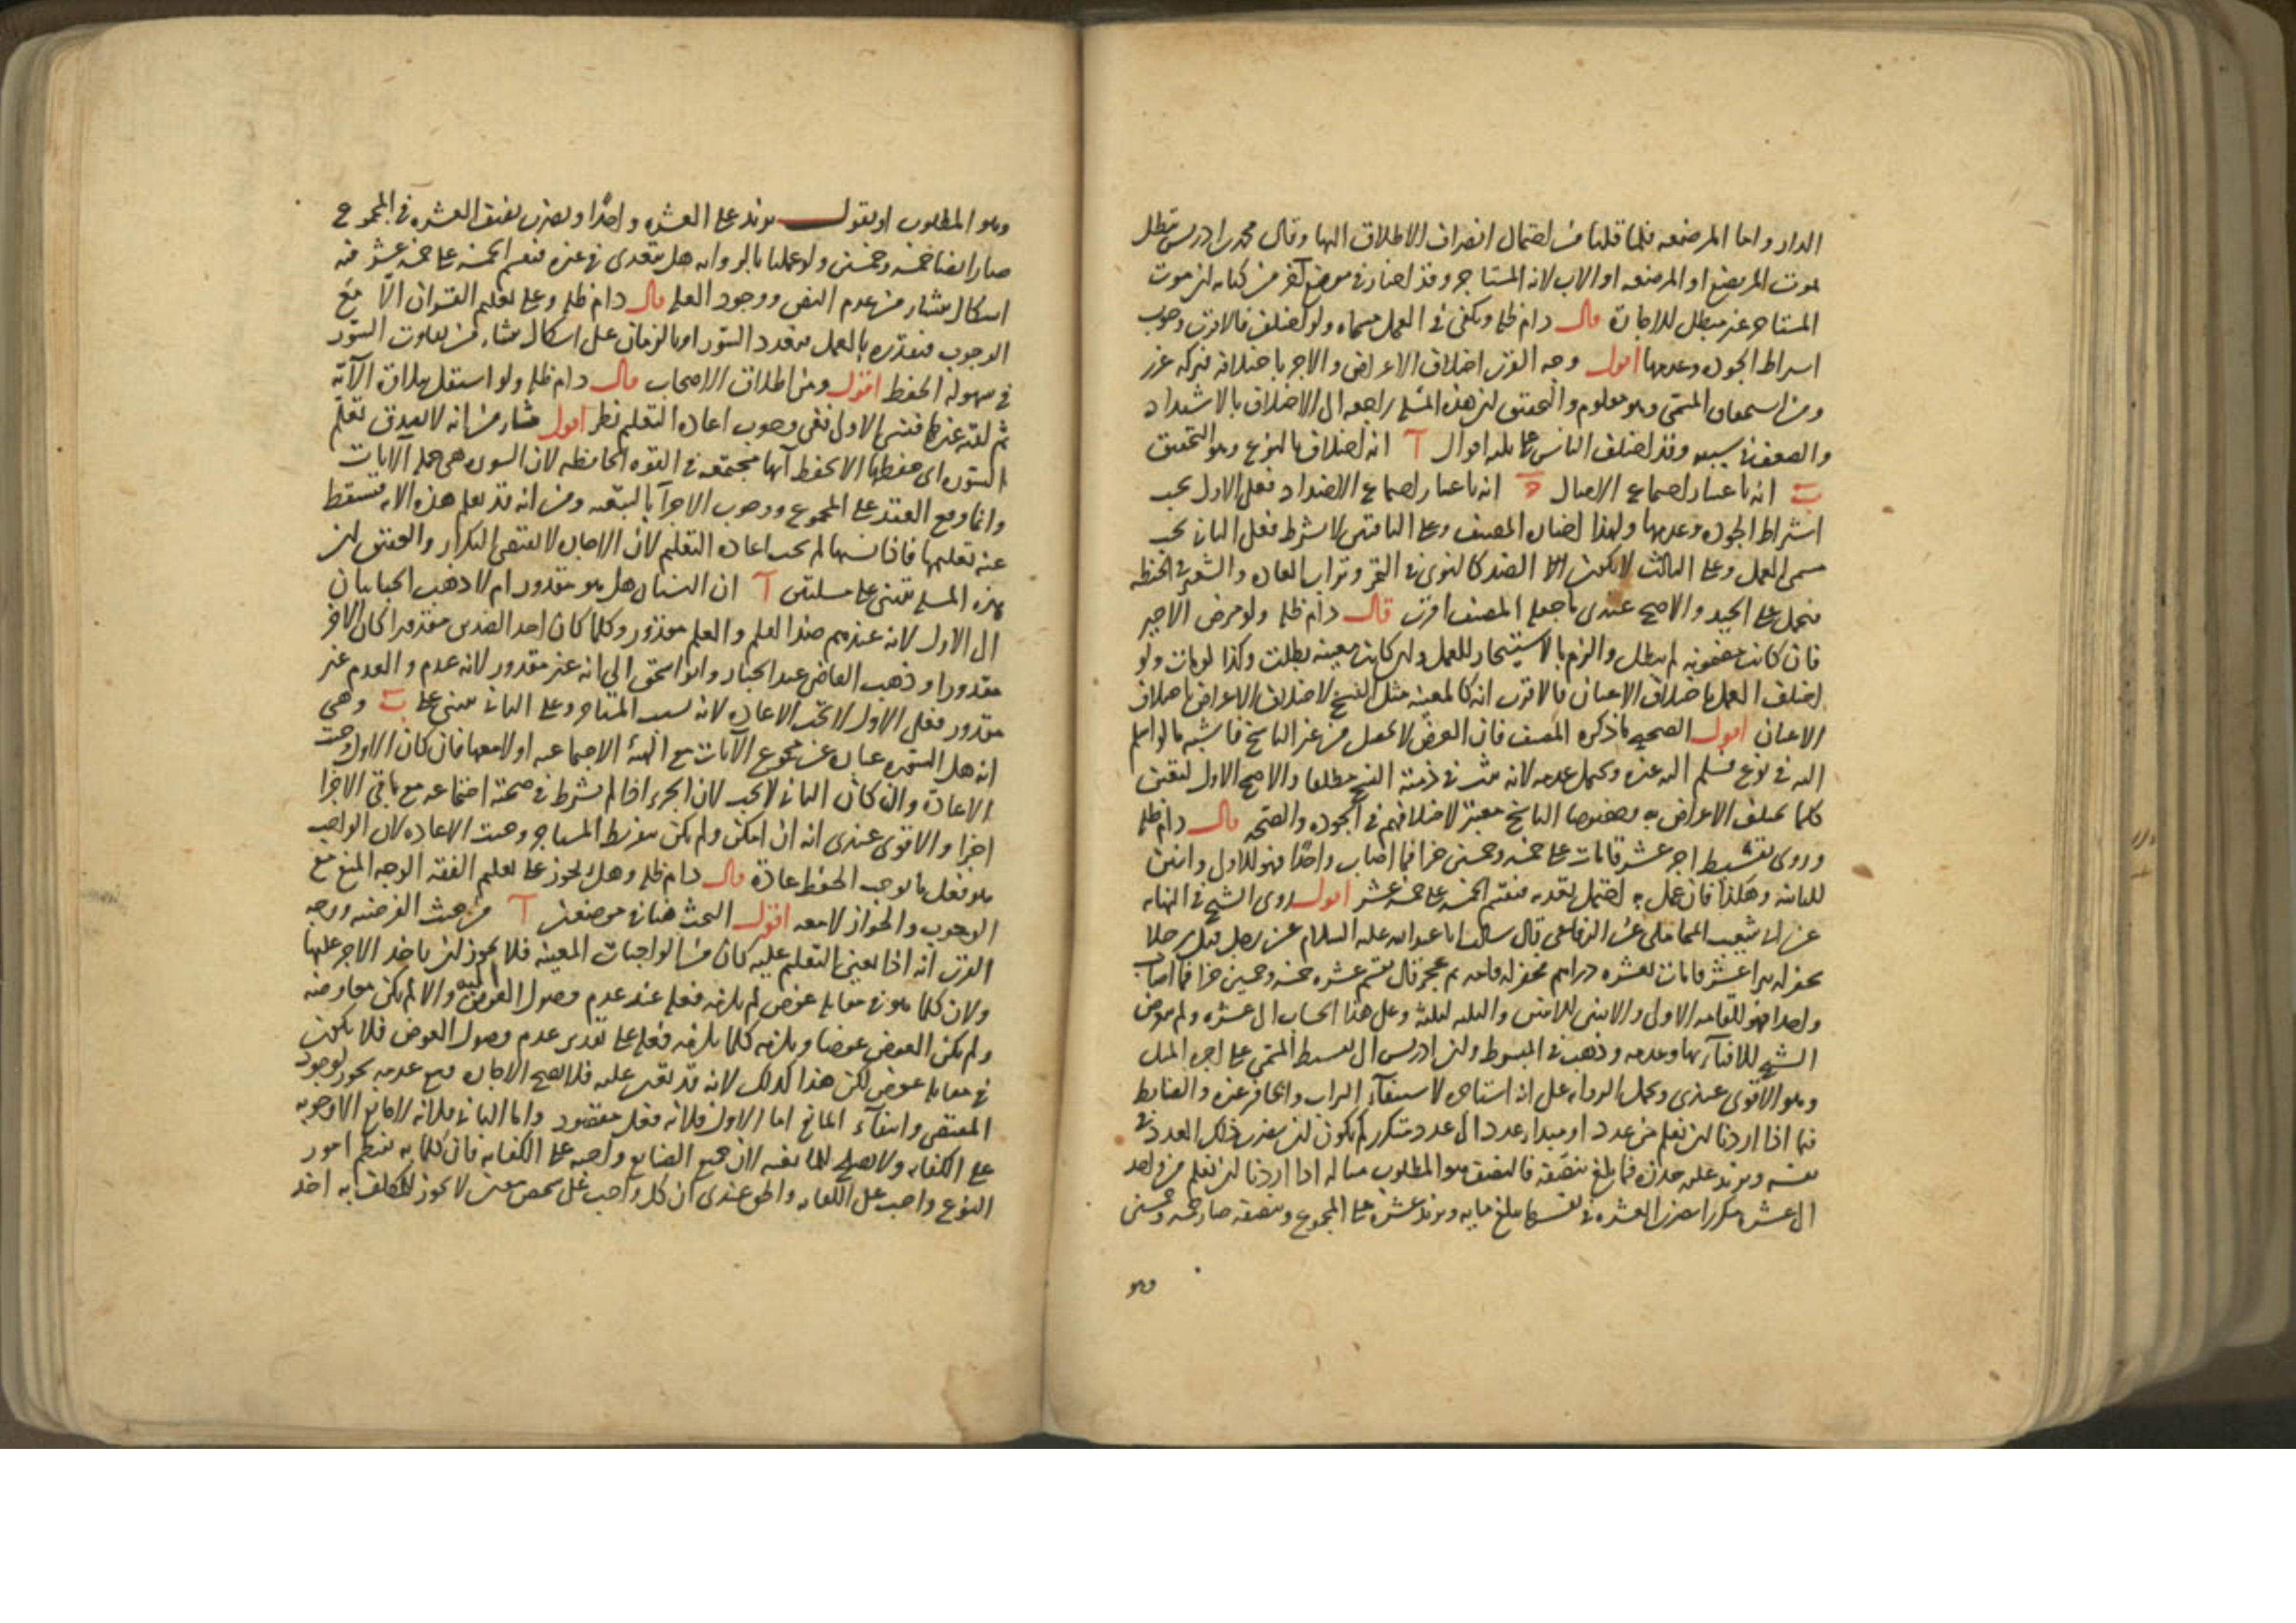 الدار واما المرضعه فلما قلنا من احتمال انصراف الاطلاق اليها وقال محمد بن ادريس تبطل
بموت المرتضع او المرضعه او الاب لانه المستاجر وقد اختار في موضع آخر من كتابه ان موت
المستاجر غير مبطل للاجارة قال دام ظله ويكفي في العمل مسماه ولو اختلف فالاقرب وجوب
اشتراط الجوده وعدمها اقول وجه القرب اختلاف الاعراض والاجر باختلافه فتركه غرر
ومن استحقاق المسمى وهو معلوم والتحقيق ان هذه المسئله راجعه الى الاختلاف بالاشتداد
والضعف سببه وقد اختلف الناس على ثلثه اقوال آ انه اختلاف بالنوع وهو التحقيق
ب انه باعتبار اجتماع الامثال ج انه باعتبار اجتماع الاضداد فعلى الاول يجب
اشتراط الجوده وعدمها ولهذا اختاره المصنف وعلى الباقيتين لا يشترط فعلى الثاني يجب
مسمى العمل وعلى الثالث لا يكون الا الضد كالنوى في التمر وتراب العاده والشعير في الحنطه
فيحمل على الجيد والاصح عندي ما جعله المصنف اقرب قال دام ظله ولو مرض الاجير
فان كانت مضمونه لم تبطل والزم بالاستيجار للعمل وان كانت معينه بطلت وكذا لو مات ولو
اختلف العمل باختلاف الاعيان فالاقرب انه كالمعينه مثل النسخ لاختلاف الاعراض باختلاف
الاعيان اقول الصحيح ما ذكره المصنف فان العوض لا يحصل من غير الناسخ فاشبه ما لو اسلم
اليه في نوع فسلم اليه غيره ويحتمل عدمه لانه يثبت في ذمته النسخ مطلقا والاصح الاول لتعين
كلما يختلف الاعراض به وخصوصا الناسخ معتبر لاختلافهم في الجوده والصحه قال دام ظله
وروى تقسيط اجر عشر قامات على خمسه وخمسين جزا فما اصاب واحدا فهو للاول واثنين
للثانيه وهكذا فان عمل به احتمل تعديه فيقسم الخمسه على خمسه عشر اقول روى الشيخ في النهايه
عن ابي شعيب المحاملي عن الرفاعي قال سالت ابا عبد الله عليه السلام عن رجل قبل رجلا
يحفر له بيرا عشر قامات بعشره دراهم فحفر له قامه ثم عجز قال يقسم عشره خمسه وخمسين جزا فما اصاب
واحدا فهو للقامه الاولى والاثنين للاثنين والثلثه للثلثه وعلى هذا الحساب الى عشره ولم يتعرض
الشيخ للافتاء بها وعدمه وذهب في المبسوط وابن ادريس الى تقسيط المسمى على اجره المثل
وهو الاقوى عندي ويحمل الروايه على ان استاجره لاستيفاء التراب والحافر غيره والضابط
فيما اذا اردنا ان نعلم من عدد او مبداء عدد الى عدد متكرر كم يكون ان يضرب ذلك العدد في
نفسه ويزيد عليه جذره فما بلغ ننصفه فالنصف هو المطلوب مثاله اذا اردنا ان نعلم من واحد
الى عشره مكررا نضرب العشره في نفسها يبلغ مايه ونزيد عشره على المجموع وننصفه صار خمسه وخمسين
وهو
وهو المطلوب او نقول نزيد على العشره واحدا ونضرب نصف العشره في المجموع
صار ايضا خمسه وخمسين ولو عملنا بالروايه هل يتعدى في غيره فيقسم الخمسه على خمسه عشر فيه
اشكال ينشاء من عدم النص ووجود العله قال دام ظله وعلى تعليم القران الا مع
الوجوب فيقدره بالعمل بتعدد السور او بالزمان على اشكال ينشاء من تفاوت السور
في سهوله الحفظ اقول ومن اطلاق الاصحاب قال دام ظله ولو استقل بتلاوه الآيه
ثم لقنه غيرها فنسي الاولى ففي وجوب اعاده التعليم نظر اقول ينشاء من انه لا يصدق تعلم
السوره اي حفظها الا بحفظ آيها مجتمعه في القوه الحافظه لان السوره هي جمله الآيات
وانما وقع العقد على المجموع ووجوب الاجزآ بالتبعيه ومن انه قد تعلم هذه الايه فتسقط
عنه تعليمها فاذا نسيها لم يجب اعاده التعليم لان الاجاره لا تقتضي التكرار والتحقيق ان
هذه المسله تبتني على مسلتين آ ان النسيان هل هو مقدور ام لا ذهب الجبائيان
الى الاول لانه عندهم ضد العلم والعلم مقدور وكلما كان احد الضدين مقدورا كان الاخر
مقدورا وذهب القاضي عبد الجبار وابو اسحق الى انه غير مقدور لانه عدم والعدم غير
مقدور فعلى الاول لا تجب الاعاده لانه بسبب المستاجر وعلى الثاني مبني على ب وهي
انه هل السوره عباره عن مجموع الآيات مع الهيئه الاجتماعيه او لا معها فان كان الاول وجبت
الاعادة وان كان الثاني لا يجب لان الجزء اذا لم يشرط في صحته اجتماعه مع باقي الاجزا
اجزا والاقوى عندي انه ان امكن ولم يكن بتفريط المستاجر وجبت الاعاده لان الواجب
هو فعل ما يوجب الحفظ عادة قال دام ظله وهل يجوز على تعليم الفقه الوجه المنع مع
الوجوب والجواز لا معه اقول البحث هنا في موضعين آ من حيث الفرضيه ووجه
القرب انه اذا تعين التعليم عليه كان من الواجبات المعينه فلا يجوز ان ياخذ الاجر عليها
ولان كلما هو في مقابله عوض لم يلزمه فعله عند عدم وصول العوض اليه والا لم يكن معاوضه
ولم يكن العوض عوضا ويلزمه كلما يلزمه فعله على تقدير عدم وصول العوض فلا يكون
في مقابله عوض لكن هذا كذلك لانه قد تعين عليه فلا يصح الاجاره ومع عدمه يجوز لوجود
المقتضي وانتفآء المانع اما الاول فلانه فعل مقصود واما الثاني فلانه لا مانع الا وجوبه
على الكفايه ولا يصلح للمانعيه لان جميع الصنايع واجبه على الكفايه فان كلما به ينتظم امور
النوع واجب على الكفايه والحق عندي ان كل واجب على شخص معين لا يجوز للمكلف به اخذ